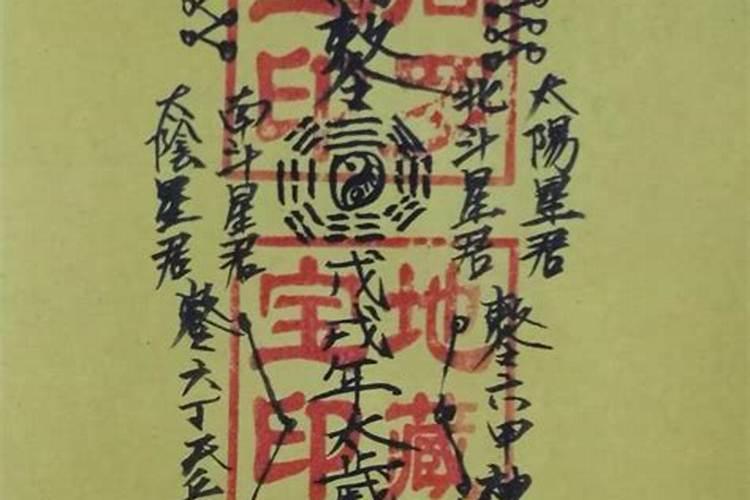 太陽星君
北斗星君
戊戌年太歲
南斗星君
太陰星君
六甲神
六丁天
地藏
宝印
印